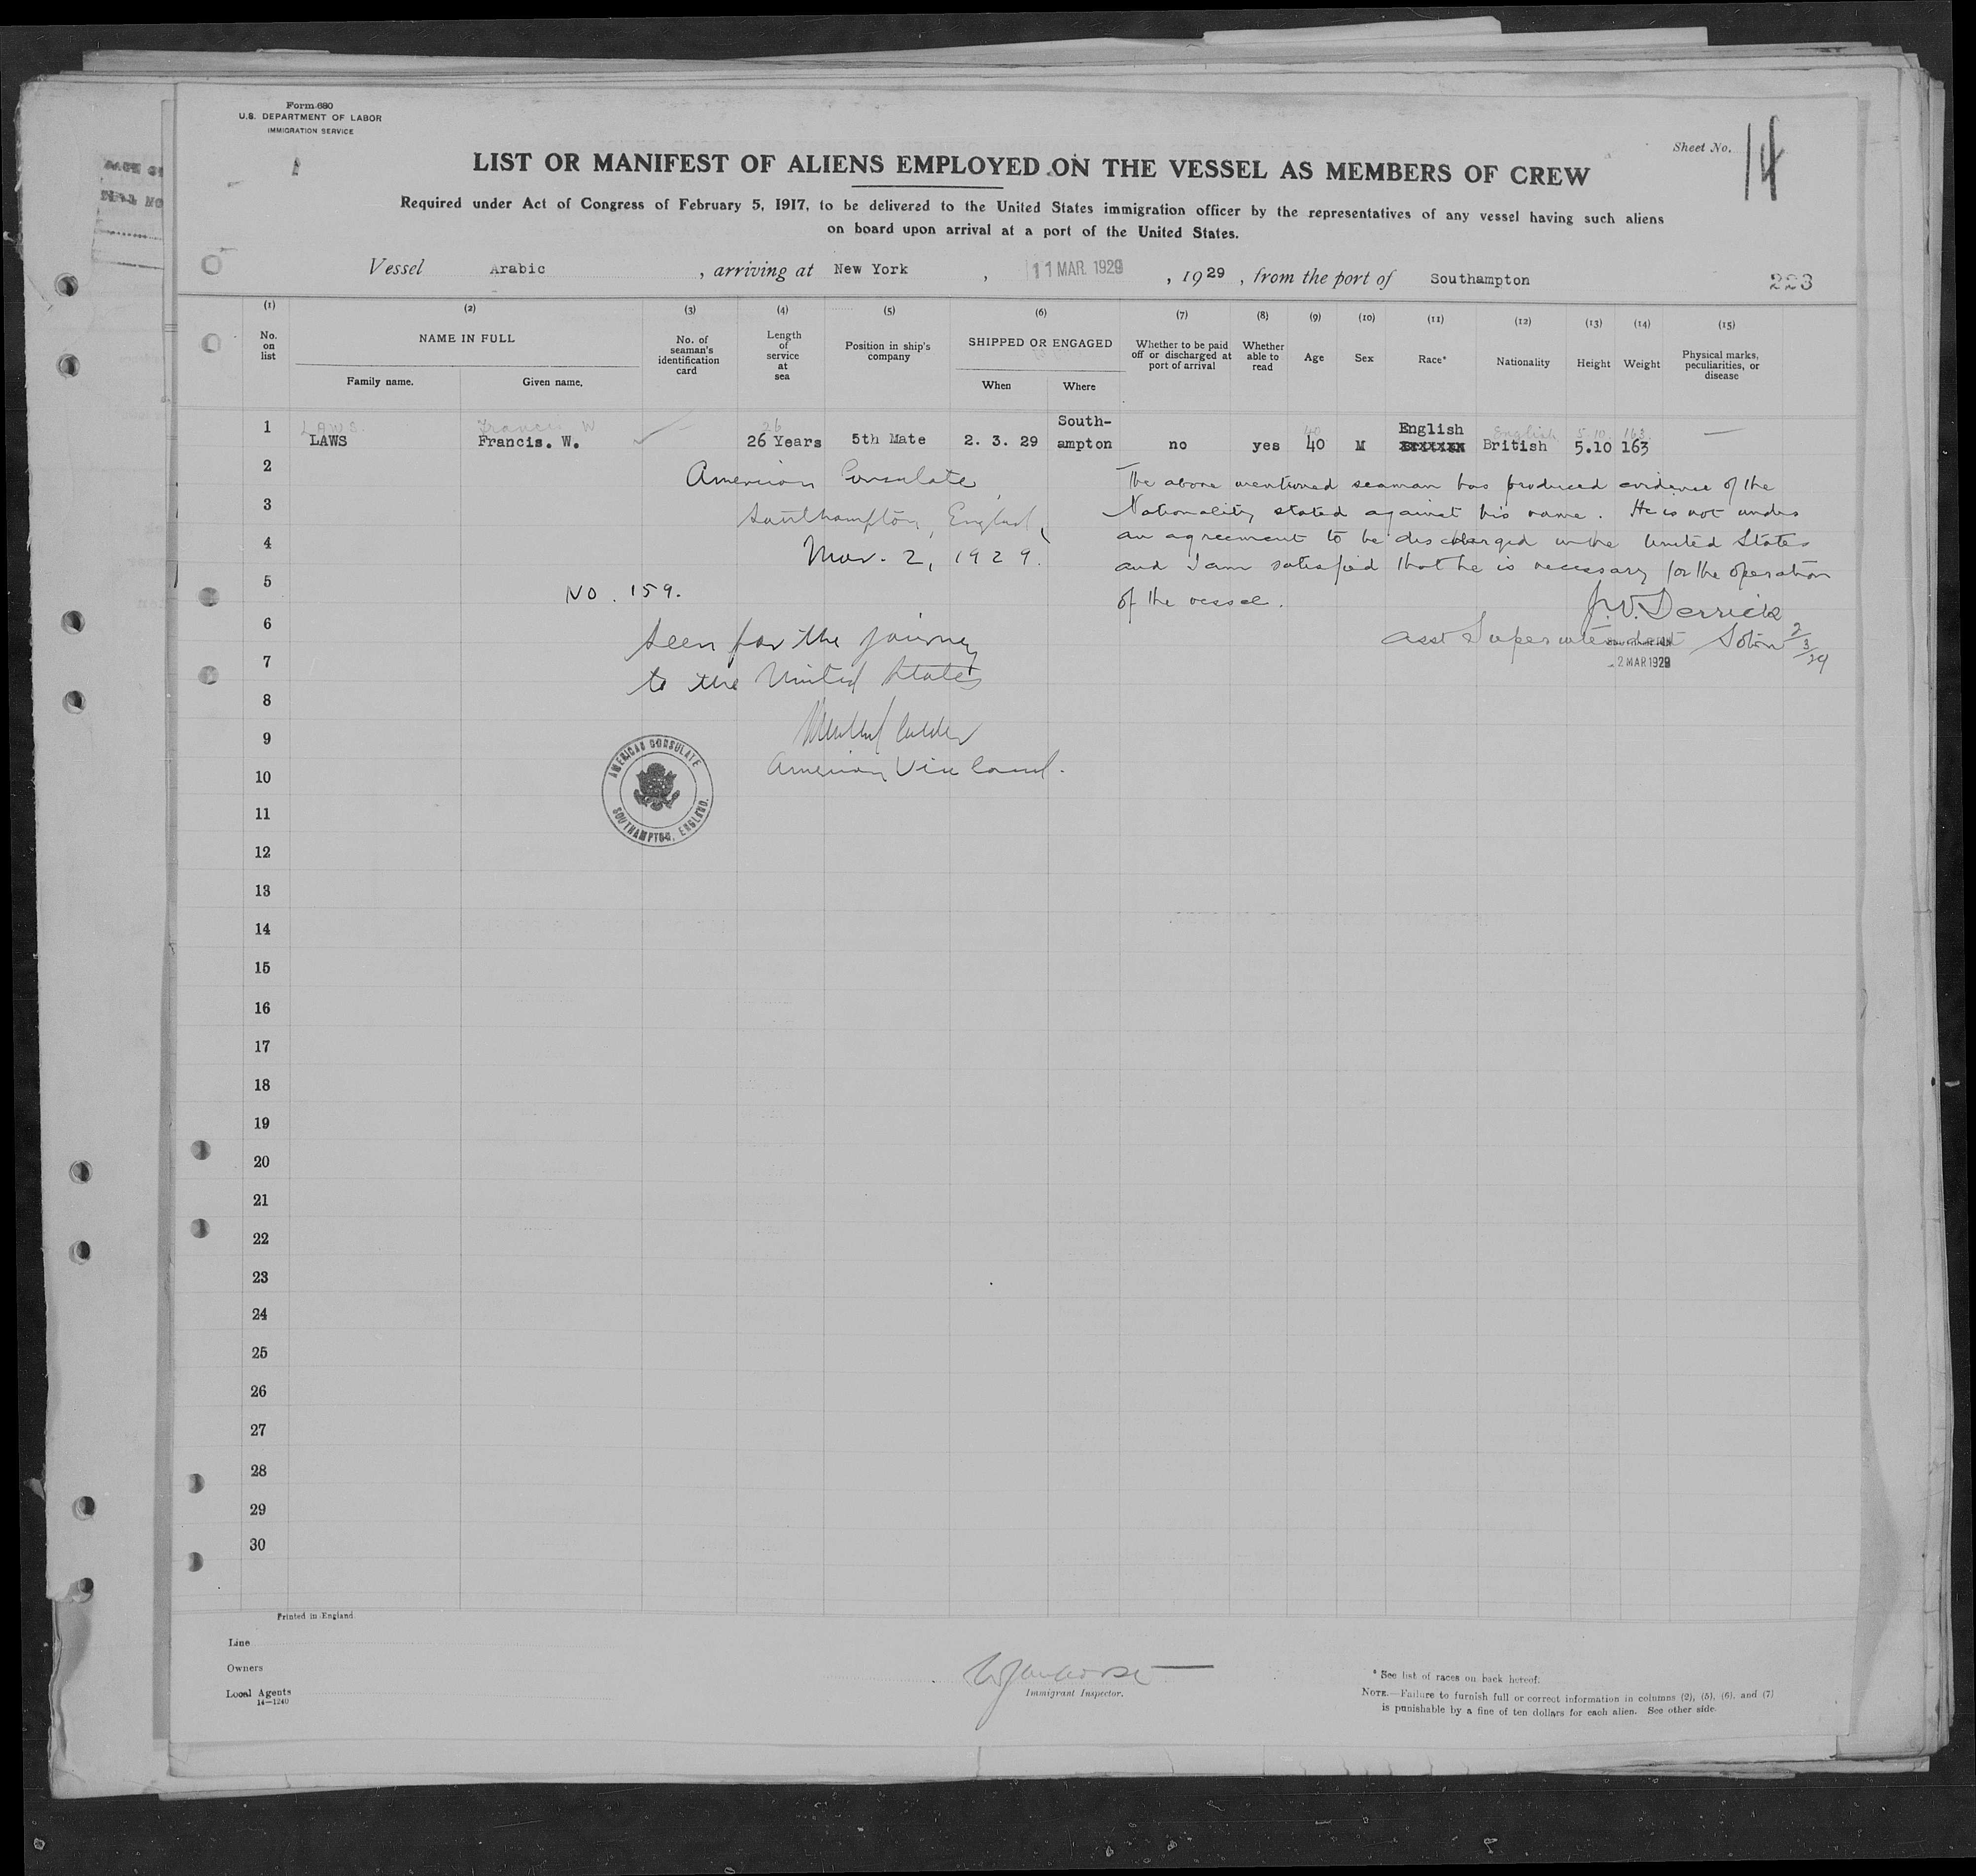 Form 680
U.S. DEPARTMENT OF LABOR
IMMIGRATION SERVICE
Sheet No. 14
LIST OR MANIFEST OF ALIENS EMPLOYED ON THE VESSEL AS MEMBERS OF CREW
Required under Act of Congress of February 5, 1917, to be delivered to the United States immigration officer by the representatives of any vessel having such aliens
on board upon arrival at a port of the United States.
Vessel Arabic , arriving at New York , 11 MAR 1929 , 1929 , from the port of Southampton 223
(1) (2) (3) (4) (5) (6) (7) (8) (9) (10) (11) (12) (13) (14) (15)
No. on list
NAME IN FULL
Family name. Given name.
No. of seaman's identification card
Length of service at sea
Position in ship's company
SHIPPED OR ENGAGED
When Where
Whether to be paid off or discharged at port of arrival
Whether able to read
Age
Sex
Race*
Nationality
Height
Weight
Physical marks, peculiarities, or disease
LAWS. Francis W 26 40 English 5.10 163
1 LAWS Francis. W. 26 Years 5th Mate 2. 3. 29 South-ampton no yes 40 M English British 5.10 163 —
2
3
4
5
6
7
8
9
10
11
12
13
14
15
16
17
18
19
20
21
22
23
24
25
26
27
28
29
30
American Consulate,
Southampton, England,
Mar. 2, 1929.
No. 159.
Seen for the journey
to the United States
American Vice Consul.
AMERICAN CONSULATE
SOUTHAMPTON, ENGLAND.
The above mentioned seaman has produced evidence of the
Nationality stated against his name. He is not under
an agreement to be discharged in the United States
and I am satisfied that he is necessary for the operation
of the vessel.
J.V. Derrick
Asst Superintendent Soton 2/3/29
2 MAR 1929
Printed in England
Line
Owners
Local Agents
14—1240
Immigrant Inspector.
* See list of races on back hereof.
NOTE.—Failure to furnish full or correct information in columns (2), (5), (6), and (7)
is punishable by a fine of ten dollars for each alien. See other side.